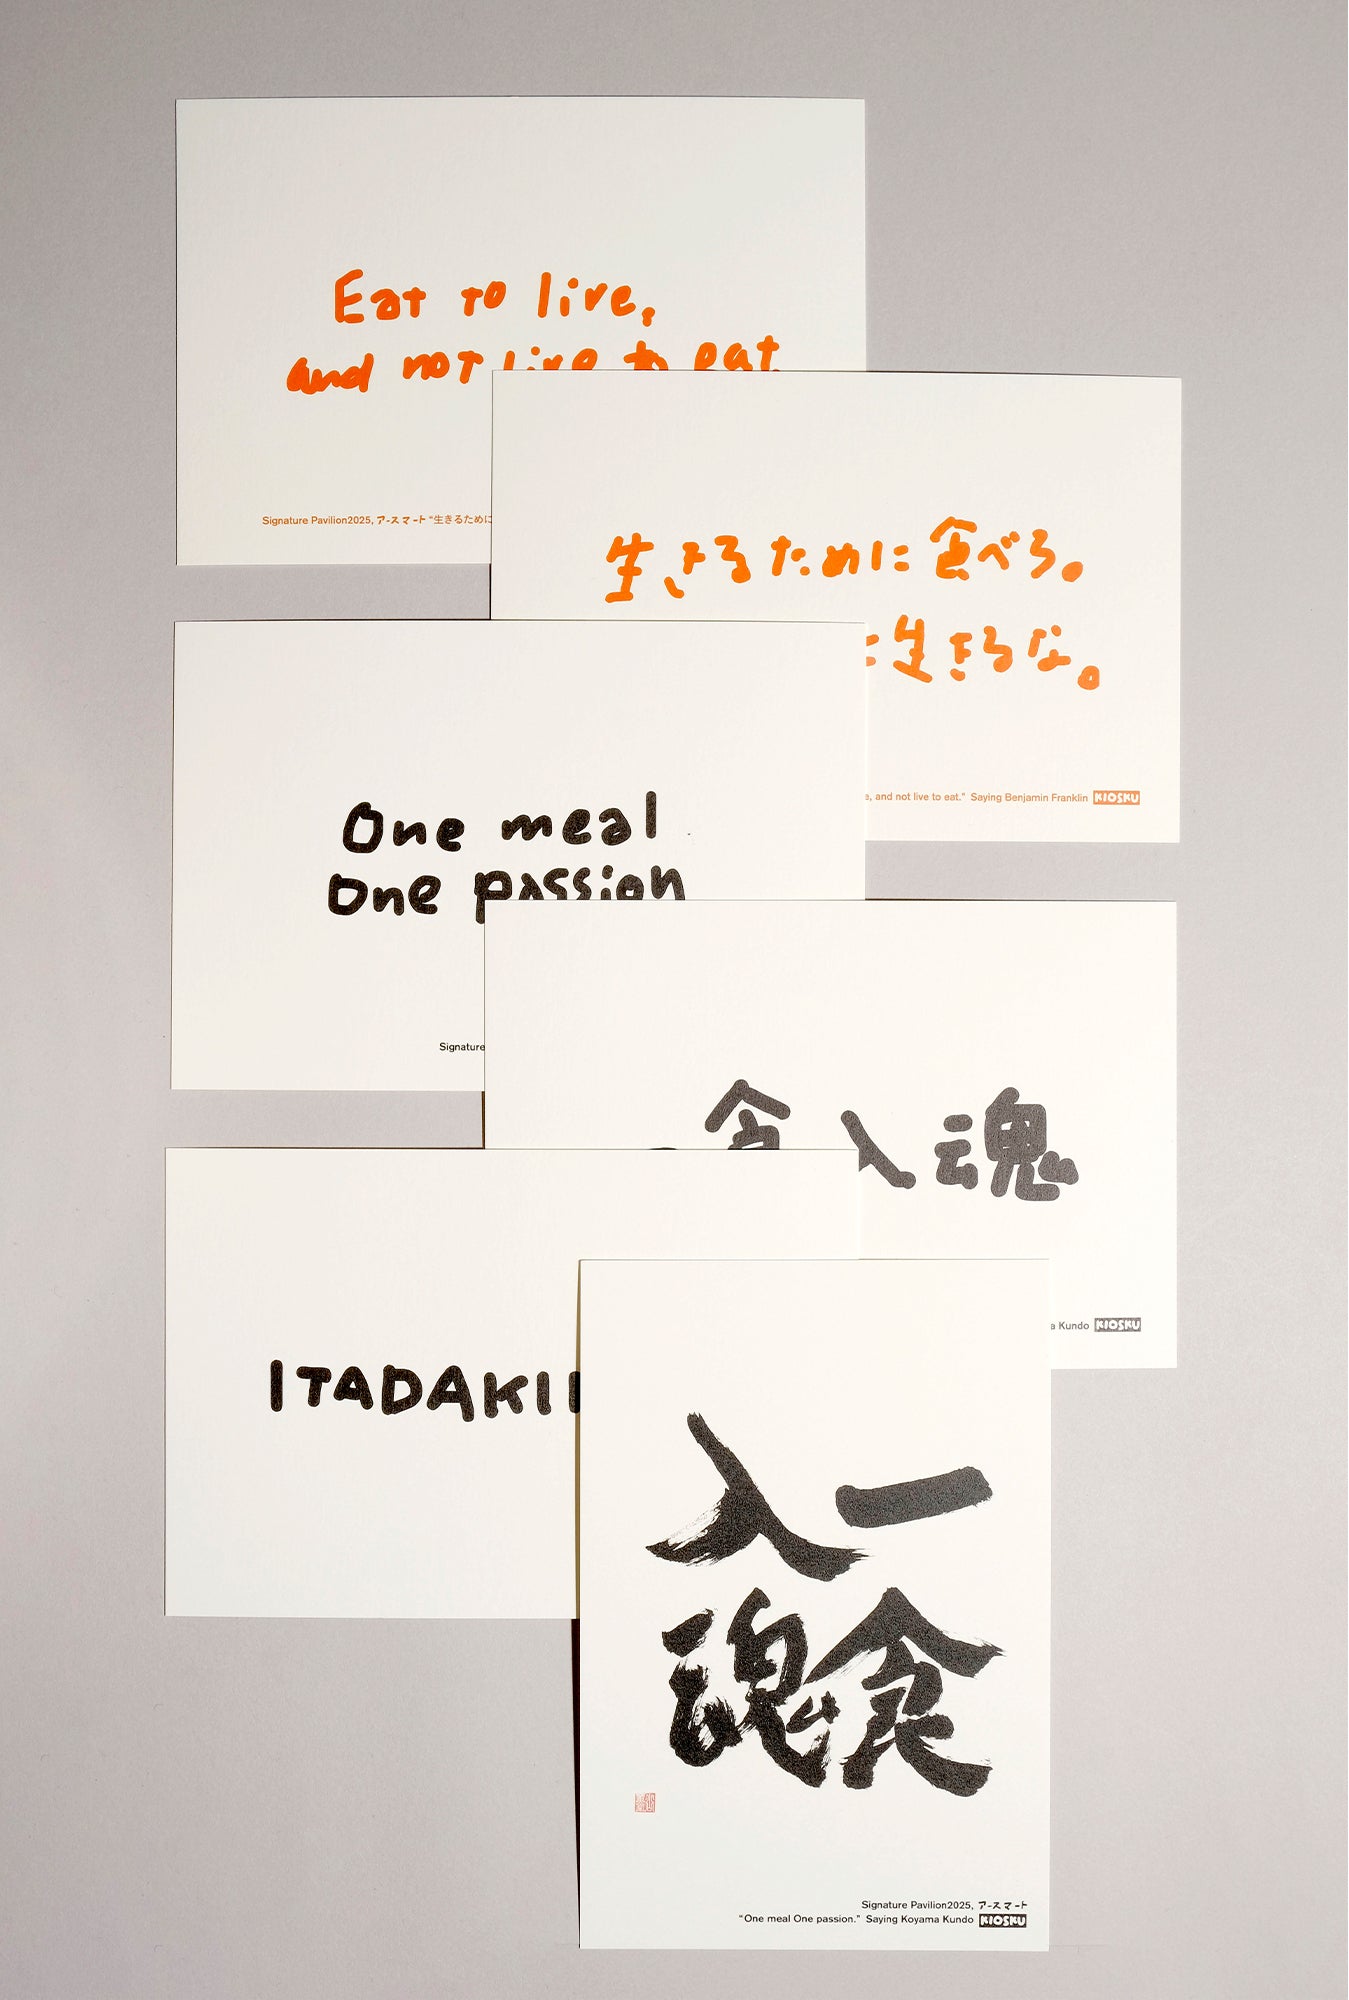 Eat to live,
and not live to eat
Signature Pavilion2025, アースマート “生きるために
生きるために食べろ。
に生きるな。
e, and not live to eat.” Saying Benjamin Franklin KIOSKU
One meal
One passion
Signature
食入魂
a Kundo KIOSKU
ITADAKI
一食
入魂
Signature Pavilion2025, アースマート
“One meal One passion.” Saying Koyama Kundo KIOSKU